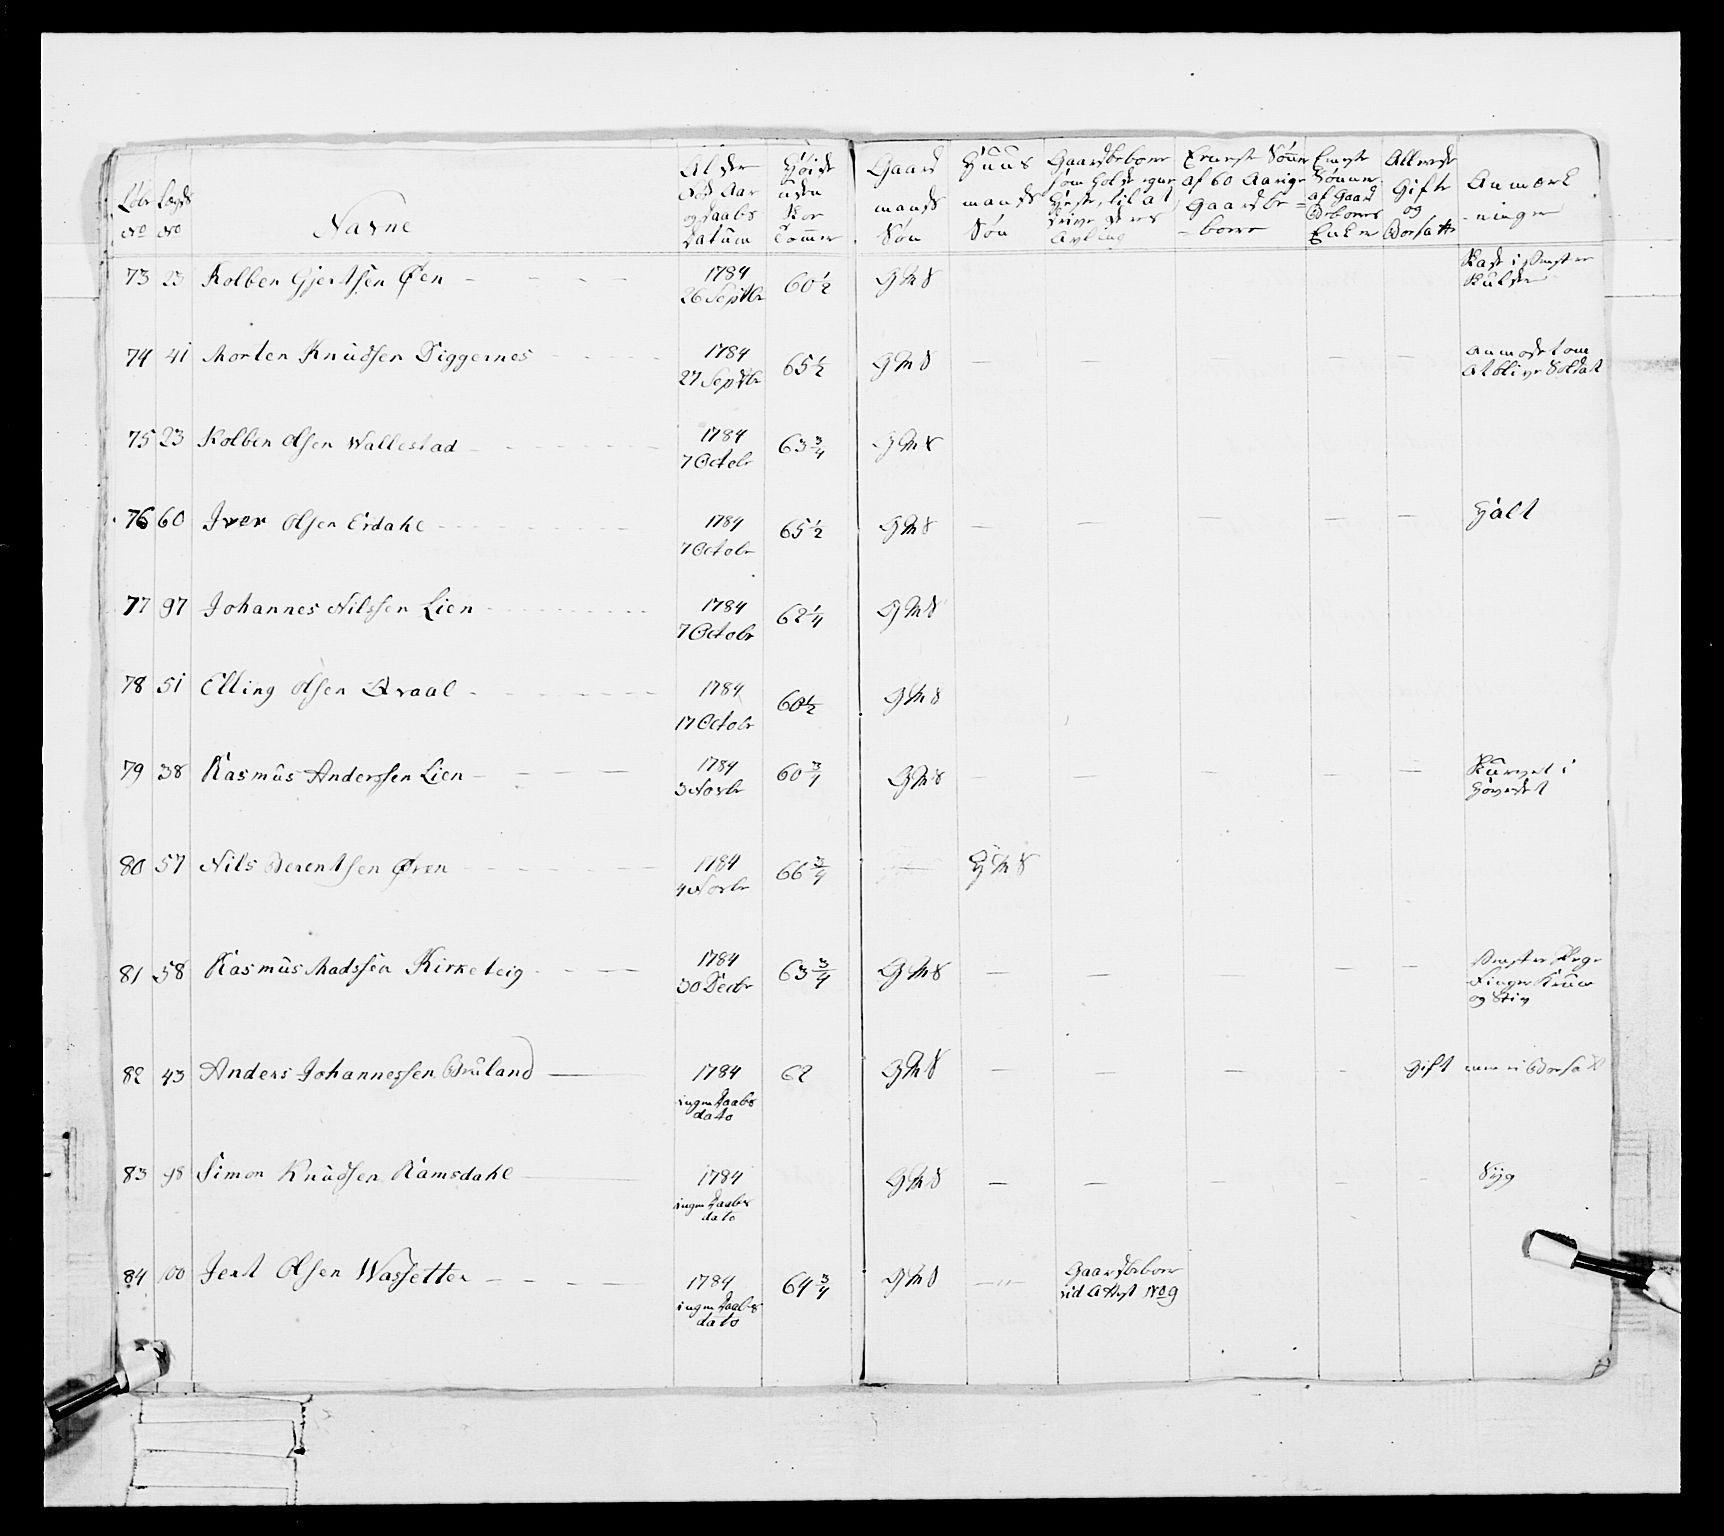 Løbe No | Lægds No | Navne | Alder Fød Aar og Daabs Datum | Høide uden Skoe Tommer | Gaard mands Søn | Huus mands Søn | Gaardbeboer som holder egne Heste til at drive deres Avling | Eeneste Sønner af 60 Aarige Gaardbe=boere | Eeneste Sønner af Gaard Beboeres Enker | Allerede Gifte og Bosatte | Anmærkninger
73 | 23 | Kolben Gjertsen Øen | 1784 26 Septbr | 60 1/2 | GMS | Skade i Venstre Skulder
74 | 41 | Morten Knudsen Diggernes | 1784 27 Septbr | 65 1/2 | GMS | — | — | — | — | Anmodet om At blive Soldat
75 | 23 | Kolben Olsen Wallestad | 1784 7 Octobr | 63 3/4 | GMS
76 | 60 | Iver Olsen Erdahl | 1784 7 Octobr | 65 1/2 | GMS | — | — | — | — | — | Halt
77 | 97 | Johannes Nilssen Lien | 1784 7 Octobr | 62 1/4 | GMS
78 | 51 | Elling Olsen Qvaal | 1784 17 Octobr | 60 1/2 | GMS
79 | 38 | Rasmus Anderssen Lien | 1784 3 Novbr | 60 3/4 | GMS | — | — | — | — | — | Skurvet i Hovedet
80 | 57 | Nils Berentsen Øren | 1784 4 Novbr | 66 3/4 | HMS
81 | 58 | Rasmus Madssen Kirketeig | 1784 30 Decbr | 63 3/4 | GMS | — | — | — | — | Venstre Pege Finger Krum og Stiv
82 | 43 | Anders Johannessen Bruland | 1784 ingen Daabs dato | 62 | GMS | — | — | — | — | Gift | men ei Bosadt
83 | 98 | Simon Knudsen Ramsdahl | 1784 ingen Daabs dato | GMS | — | — | — | — | — | Syg
84 | 100 | Jert Olsen Wassetter | 1784 ingen Daabs dato | 64 3/4 | GMS | —„— | Gaardbeboer vid Attest No 9